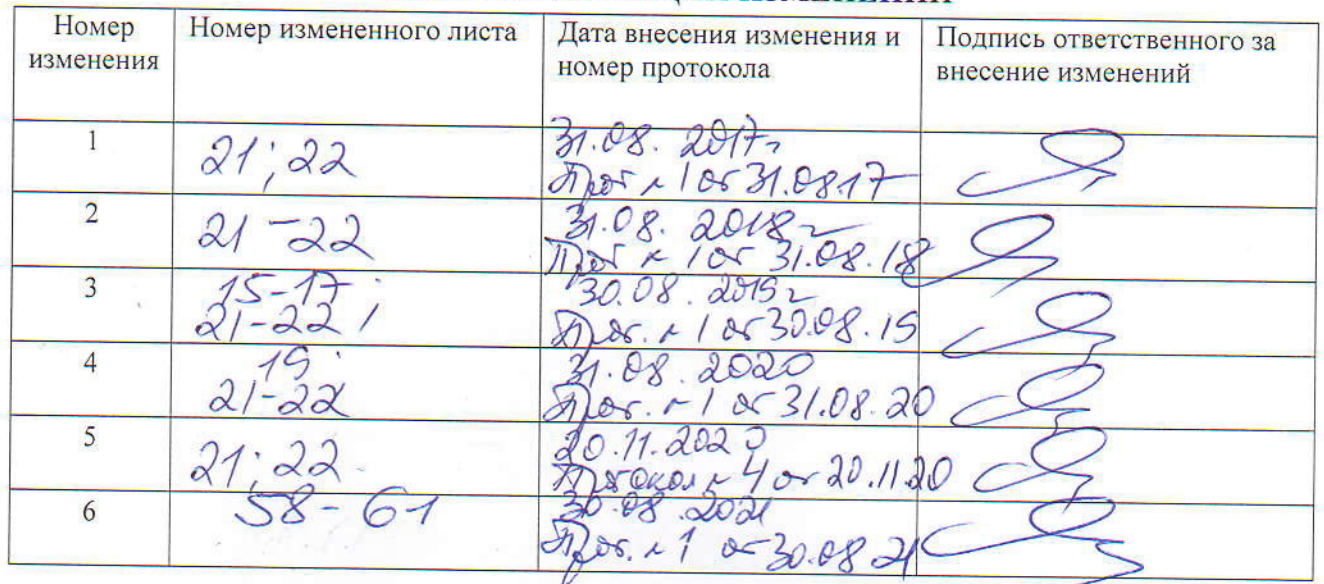 Номер изменения | Номер измененного листа | Дата внесения изменения и номер протокола | Подпись ответственного за внесение изменений
1 | 21; 22 | 31.08. 2017г
Прот № 1 от 31.08.17
2 | 21-22 | 31.08. 2018г
Прот № 1 от 31.08.18
3 | 15-17;
21-22 | 30.08. 2019г
Прот. № 1 от 30.08.19
4 | 19;
21-22 | 31.08. 2020
Прот. № 1 от 31.08.20
5 | 21; 22 | 20.11.2020
Протокол № 4 от 20.11.20
6 | 58-61 | 30.08.2021
Прот. № 1 от 30.08.21